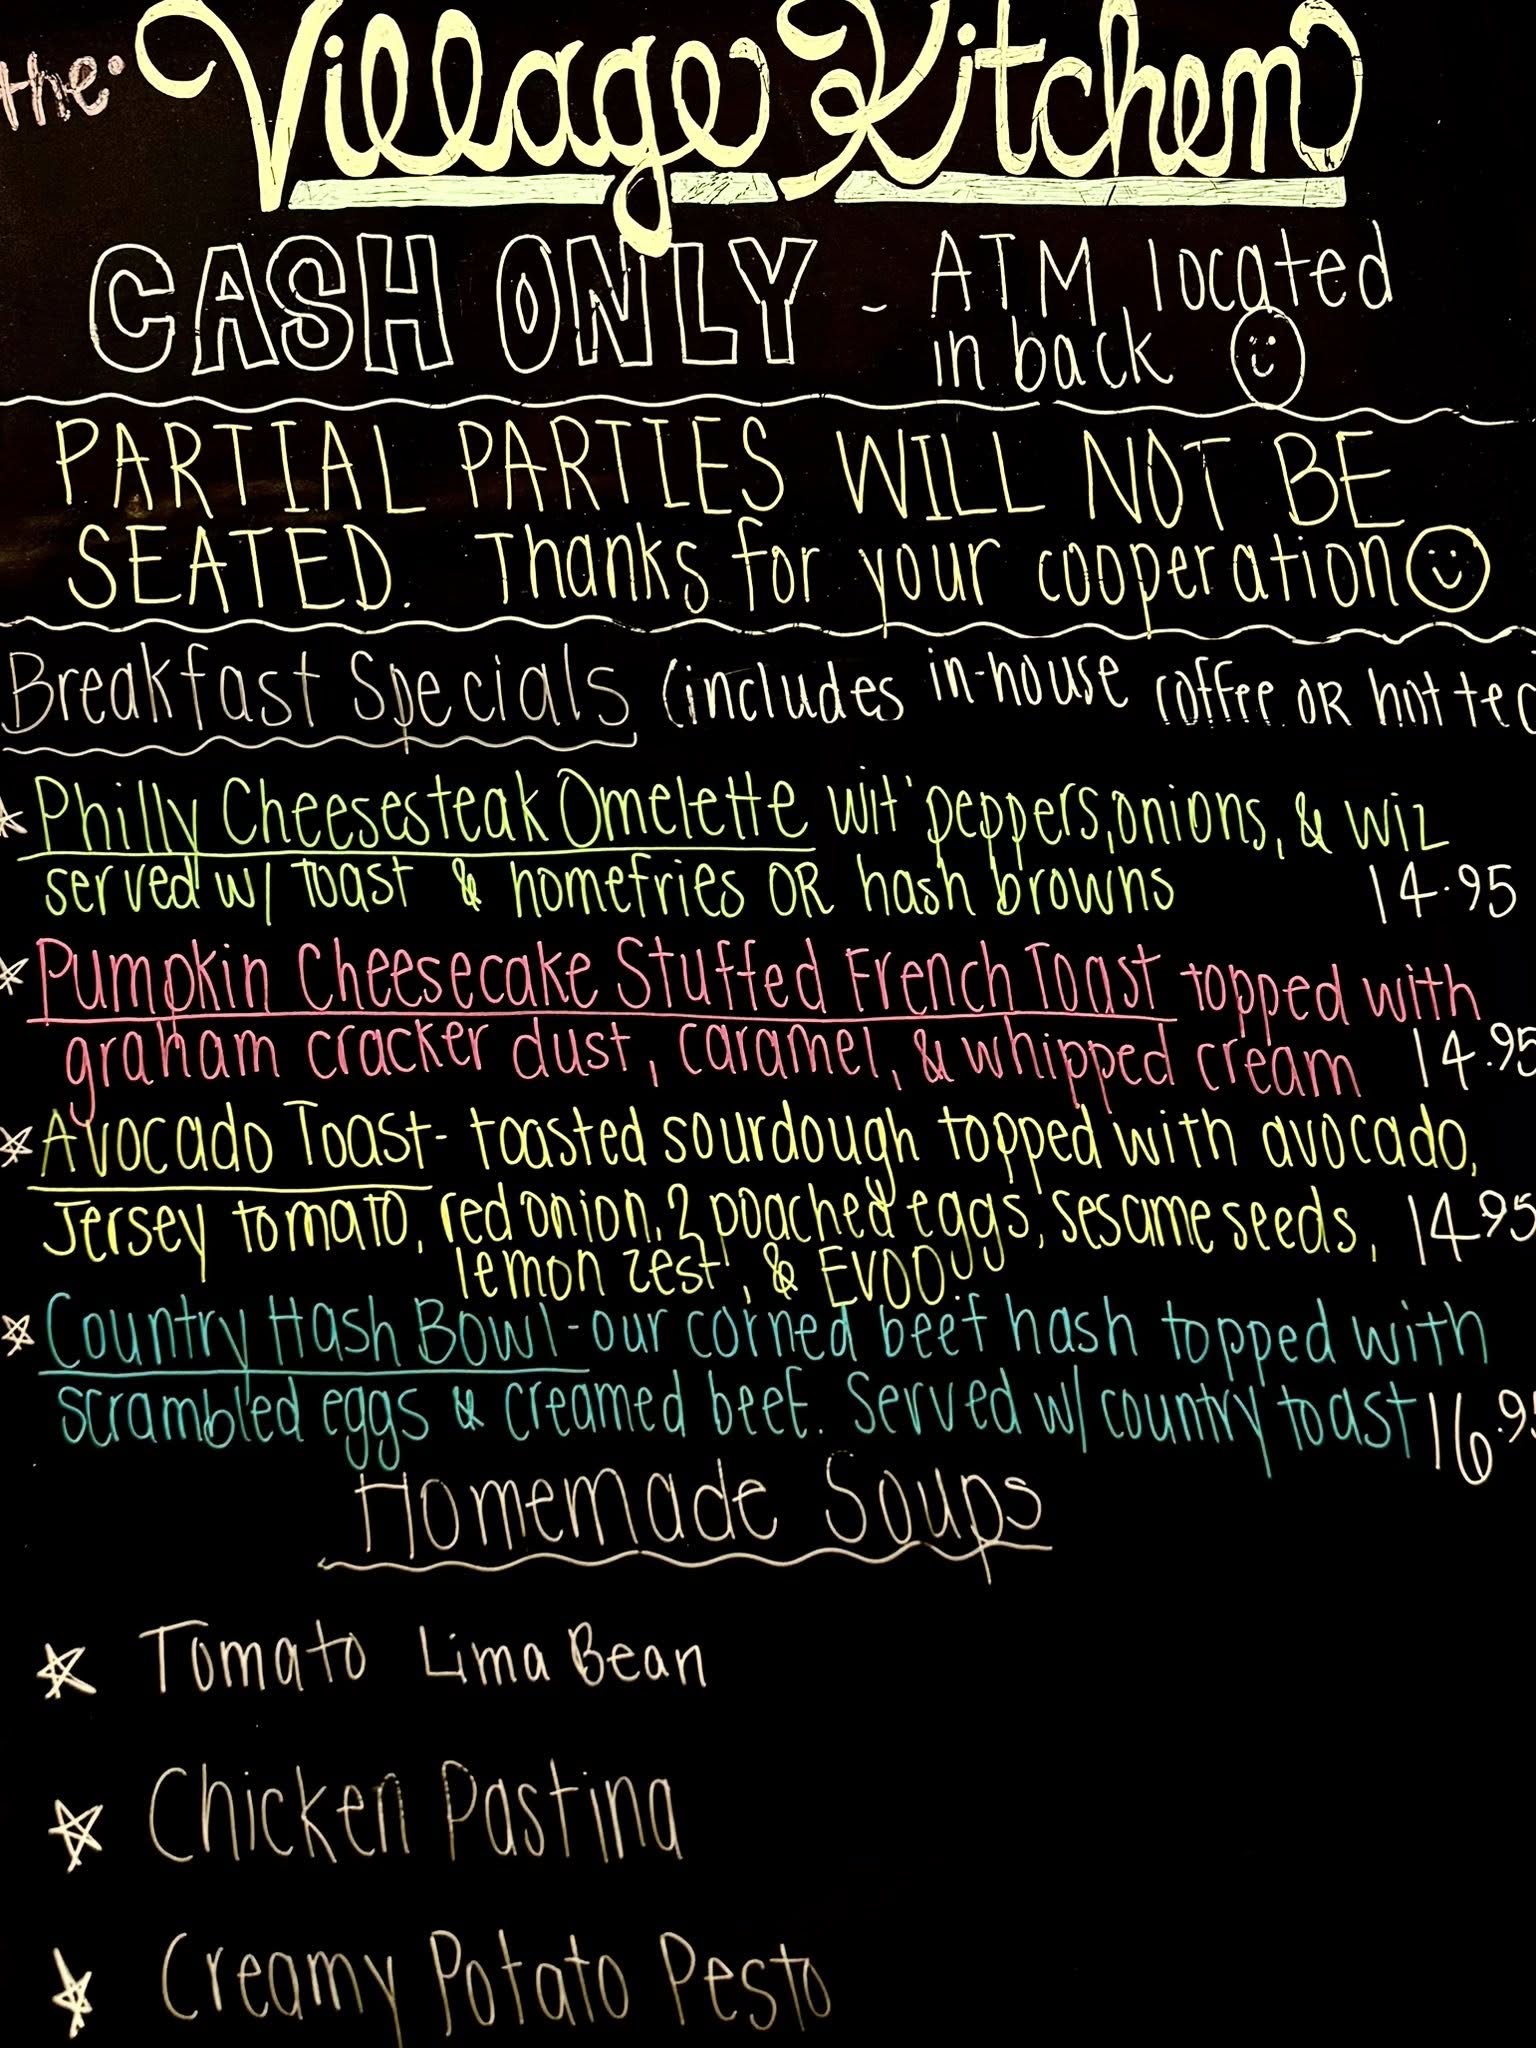 the Village Kitchen
CASH ONLY - ATM located
in back
PARTIAL PARTIES WILL NOT BE
SEATED. Thanks for your cooperation
Breakfast Specials (includes in-house coffee OR hot te
Philly Cheesesteak Omelette wit' peppers, onions, & wiz
served w/ toast & homefries OR hash browns 14.95
Pumpkin Cheesecake Stuffed French Toast topped with
graham cracker dust, caramel, & whipped cream 14.95
Avocado Toast - toasted sourdough topped with avocado,
Jersey tomato, red onion, 2 poached eggs, sesame seeds, 14.95
lemon zest, & EVOO.
Country Hash Bowl - our corned beef hash topped with
scrambled eggs & creamed beef. Served w/ country toast 16.9
Homemade Soups
Tomato Lima Bean
Chicken Pastina
Creamy Potato Pesto